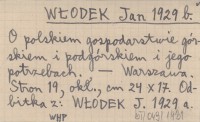 WŁODEK Jan 1929 b.
O polskiem gospodarstwie gór-
skiem i podgórskiem i jego
potrzebach. — Warszawa.
Stron 19, okł., cm 24 x 17. Od-
bitka z: WŁODEK J. 1929 a.
WHP